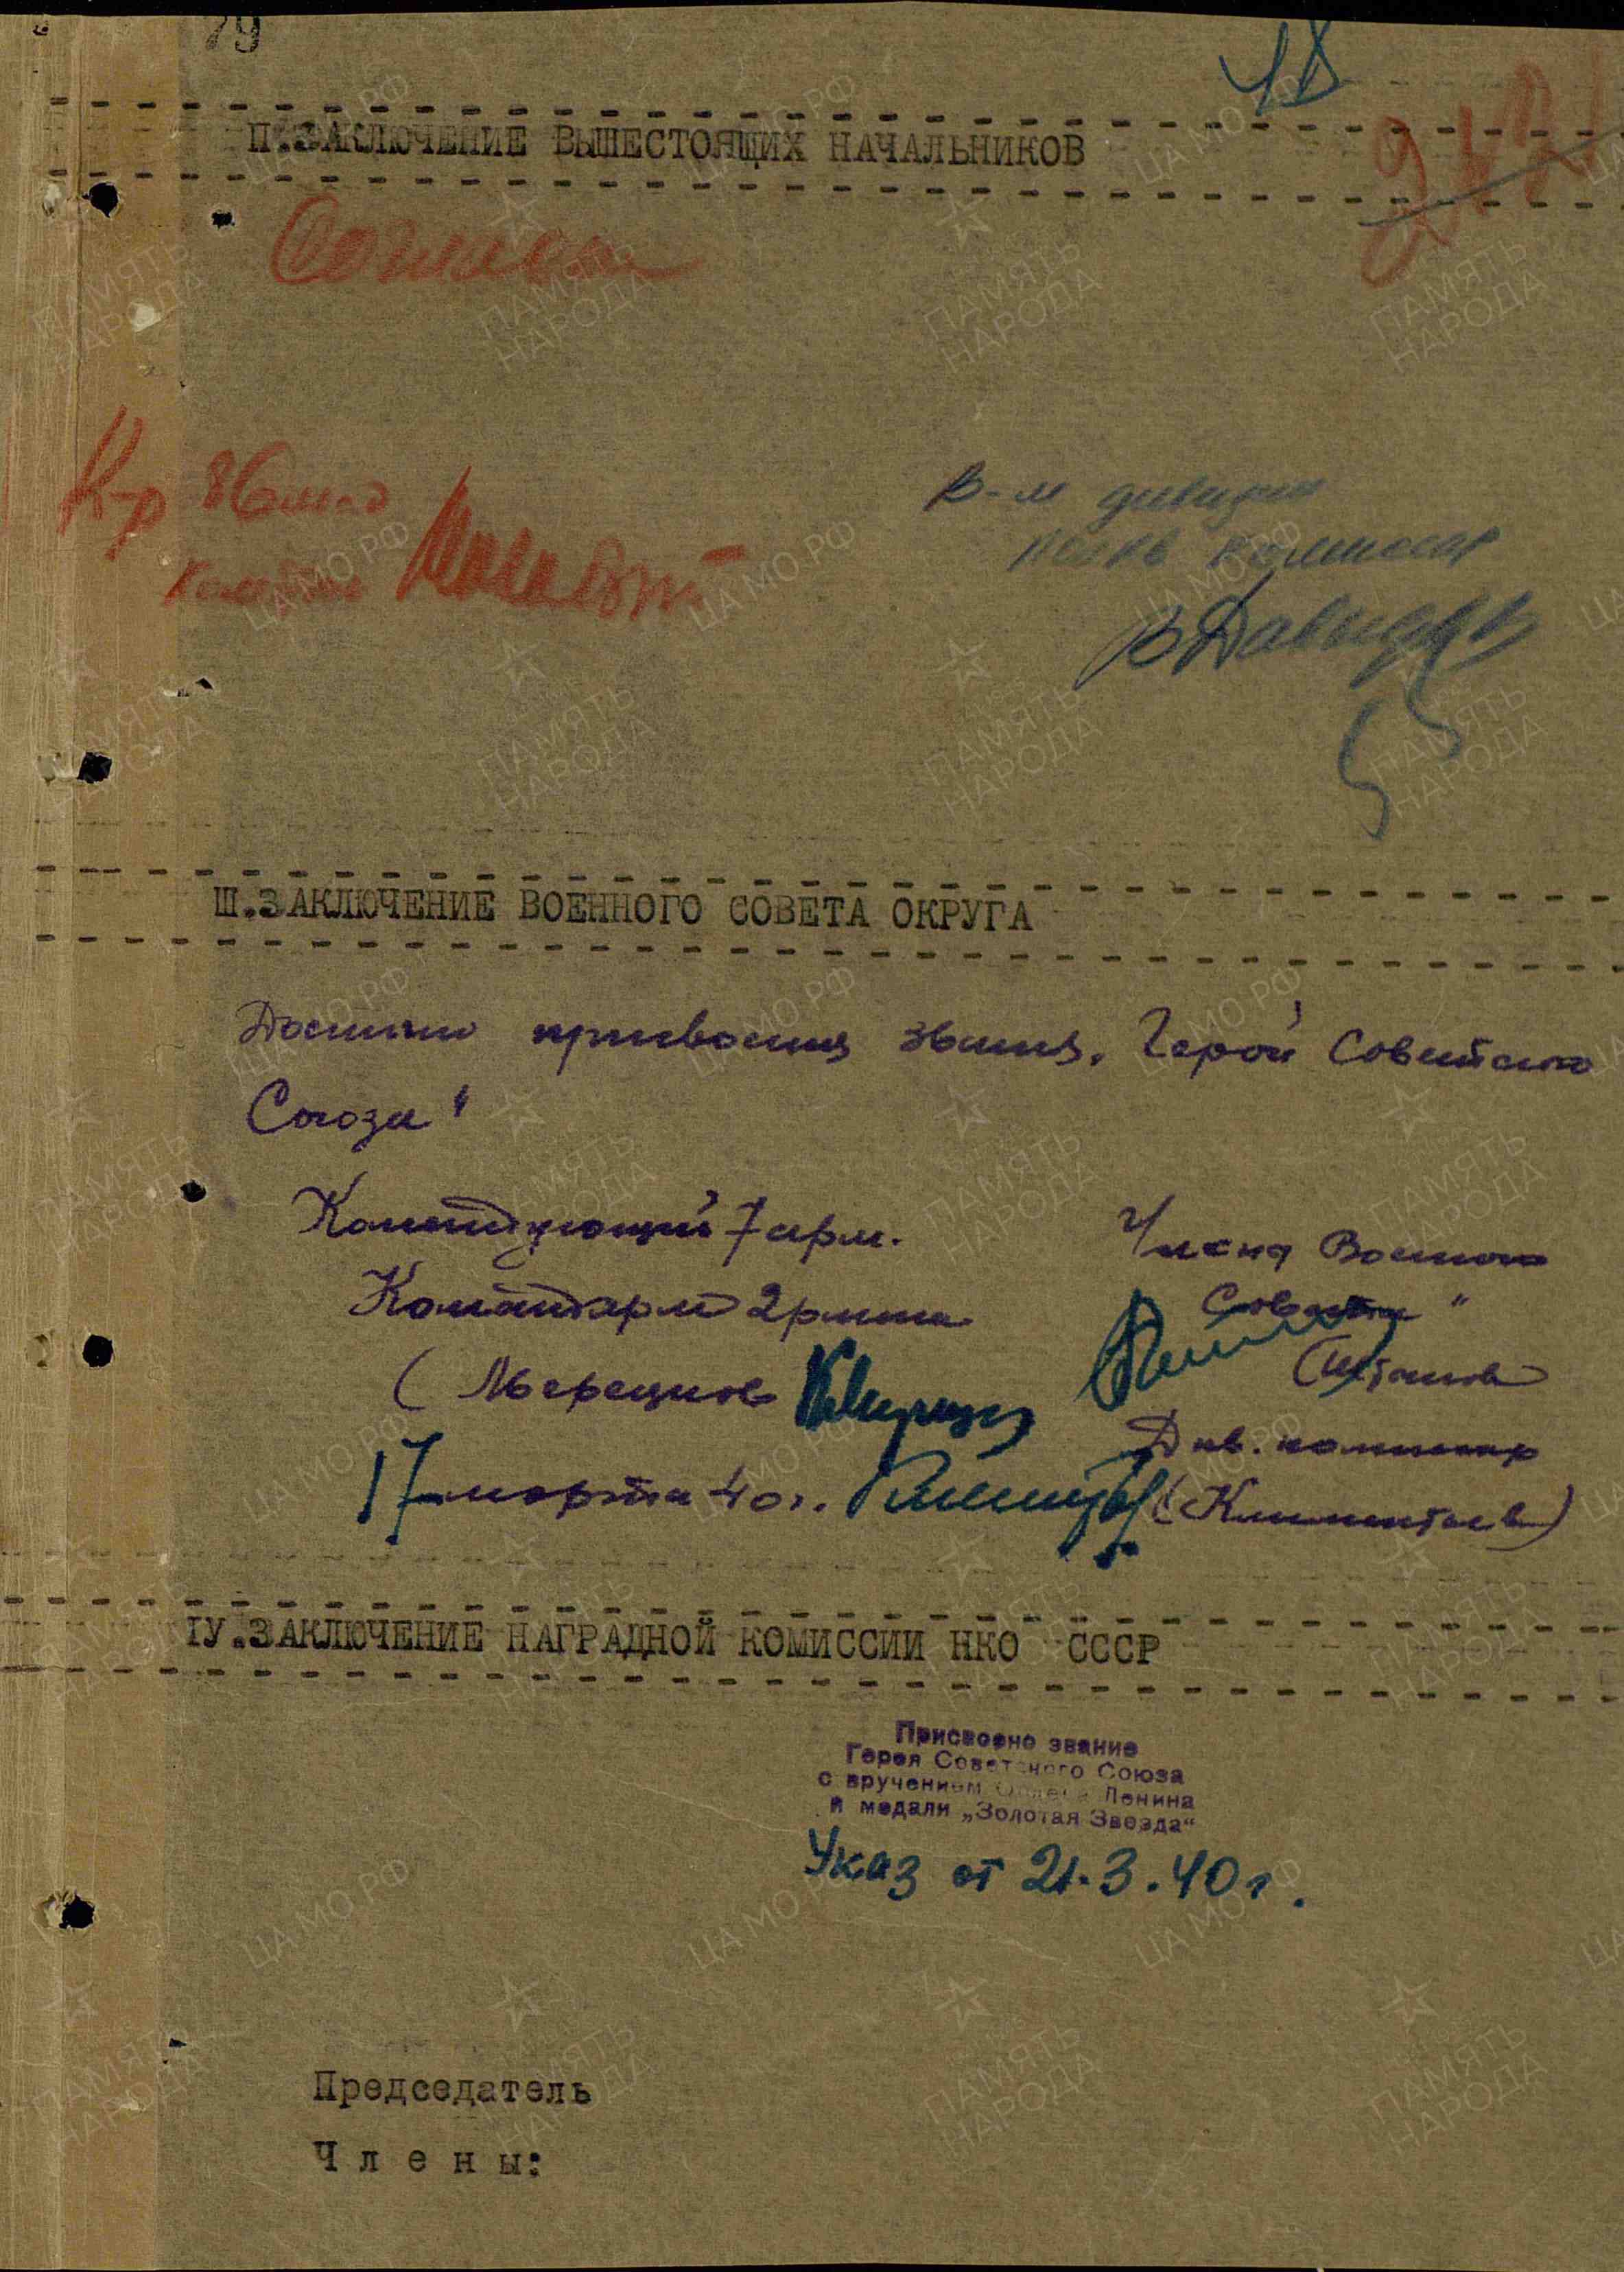 79
48
П.ЗАКЛЮЧЕНИЕ ВЫШЕСТОЯЩИХ НАЧАЛЬНИКОВ
Согласен
К-р 86 мсд
В-м дивизии
комиссар
ВДавыдов
Ш.ЗАКЛЮЧЕНИЕ ВОЕННОГО СОВЕТА ОКРУГА
Достоин присвоения звания „Герой Советского
Союза"
Командующий 7 арм.
Командарм 2 ранга
(Мерецков
17 марта 40 г.
Члены Военного
Совета "
(Штыков
Див. комиссар
(Клементьев)
IУ.ЗАКЛЮЧЕНИЕ НАГРАДНОЙ КОМИССИИ НКО СССР
Присвоено звание
Героя Советского Союза
с вручением Ордена Ленина
и медали „Золотая Звезда"
Указ от 21.3.40 г.
Председатель
Члены:
ПАМЯТЬ НАРОДА
ЦА МО РФ